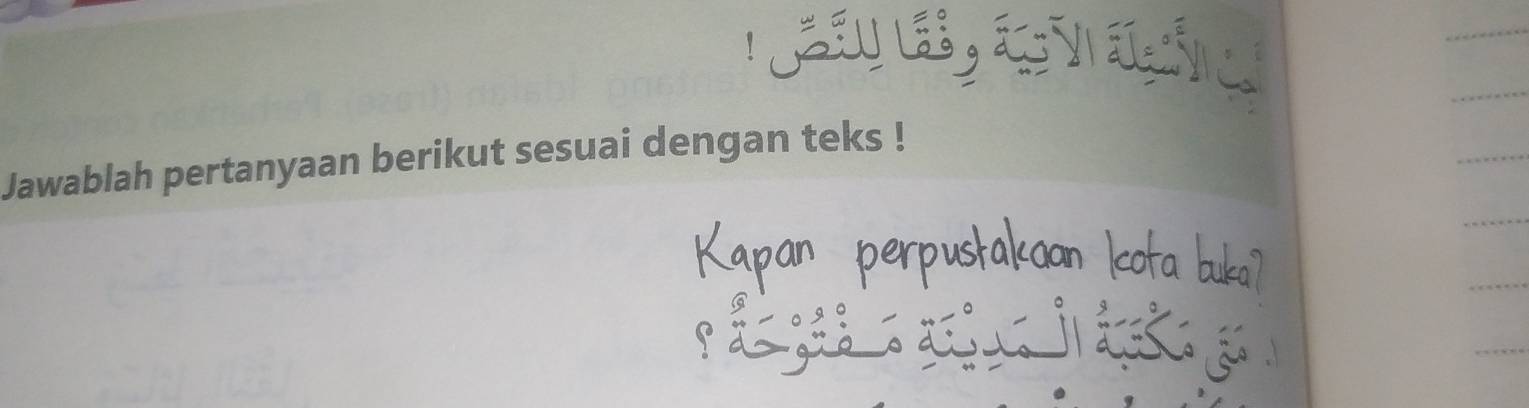 أَجِبْ الأَسْئِلَةَ الآتِيَةَ وِفْقًا لِلنَّصِّ !
Jawablah pertanyaan berikut sesuai dengan teks !
Kapan perpustakaan kota buka?
١. مَتَى مَكْتَبَةُ الْمَدِيْنَةِ مَفْتُوْحَةٌ ؟